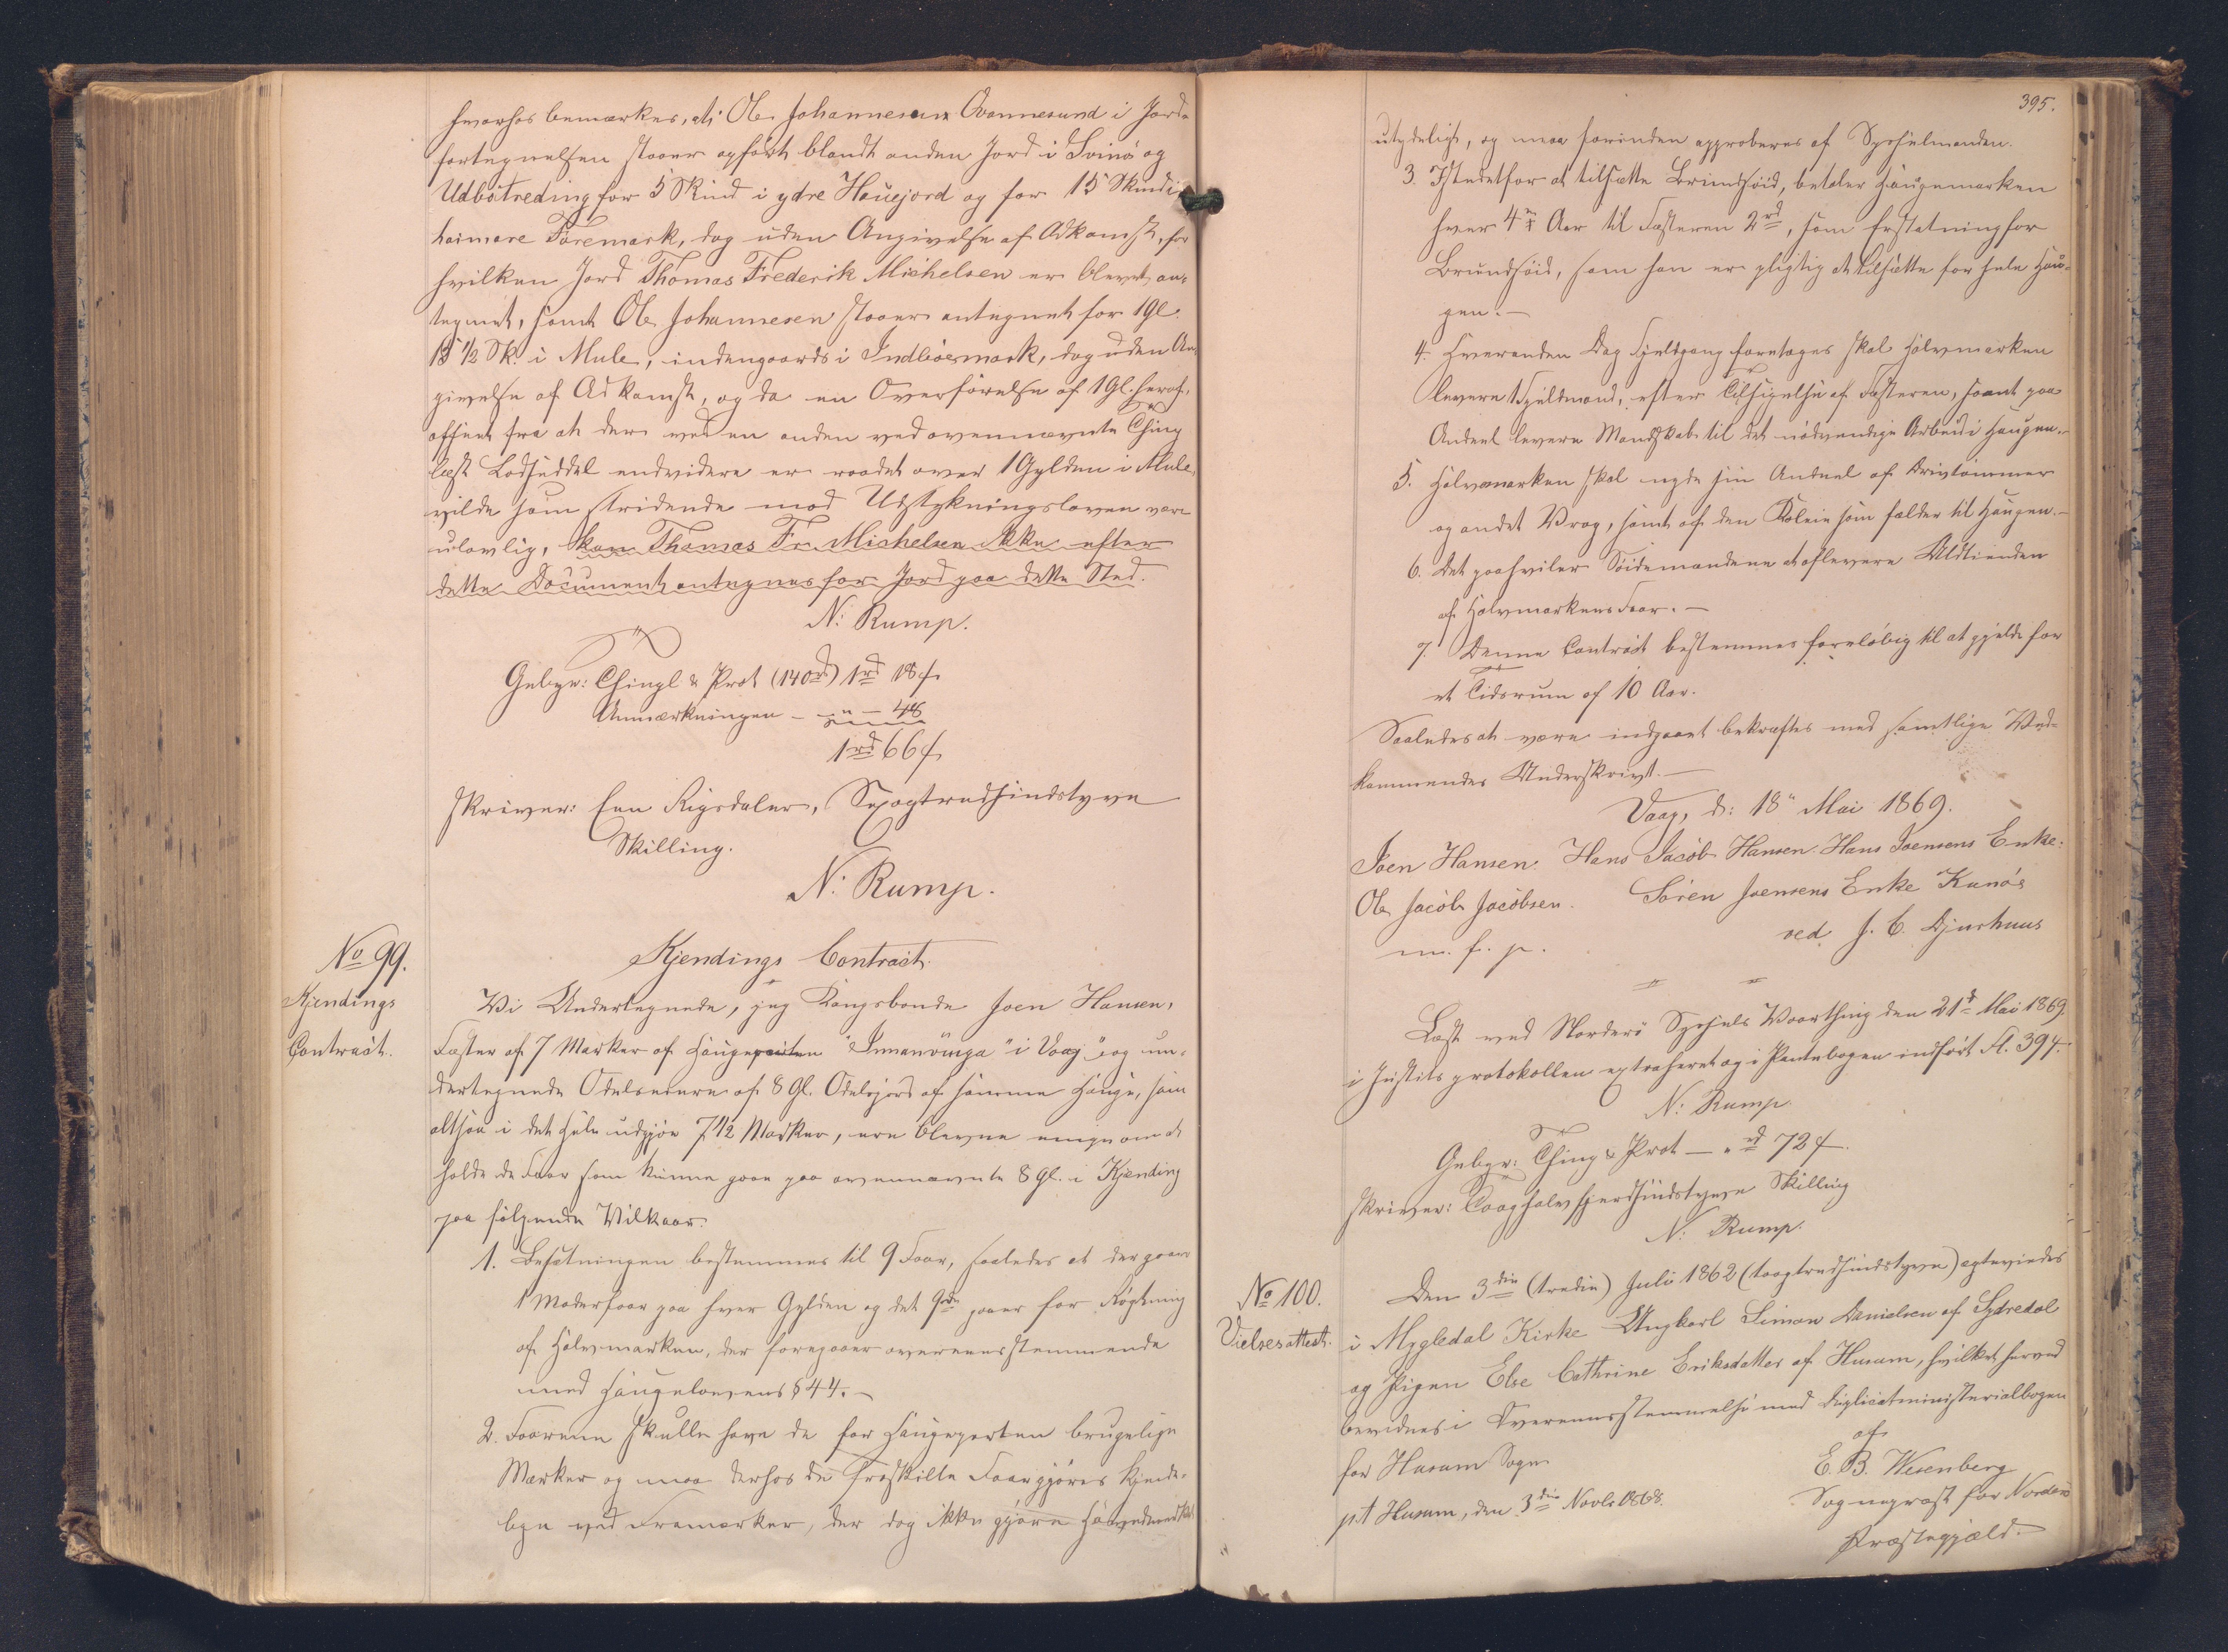 hvorhos bemærkes, at Ole Johannesen Qvannesund i Jord-
fortegnelsen staaer opført blandt anden Jord i Svinø og
Udbøtreding for 5 Skind i ydre Hauejord og for 15 Skind i
heimare Toremark, dog uden Angivelse af Adkomst, for
hvilken Jord Thomas Frederik Michelsen er blevet an-
tegnet, samt Ole Johannesen staaer antegnet for 1 Gl.
15 1/2 Sk. i Mule, indengaards i Indbøesmark, dog uden An-
givelse af Adkomst, og da en Overførelse af 1 Gl. heraf,
afseet fra at der ved en anden ved ovennævnte Thing
læst Lodseddel endvidere er raadet over 1 Gylden i Mule,
vilde som stridende mod Udstykningsloven være
ulovlig, kan Thomas Fr. Michelsen ikke efter
dette Document antegnes for Jord paa dette Sted.
N: Rump.
Gebyr: Thingl & Prot (140 rd) 1 rd 18 ß
Anmærkningen - " - 48
1 rd 66 ß
skriver: Een Rigsdaler, Sexogtredsindstyve
Skilling.
N: Rump.
No 99.
Kjendings
Contract.
Kjendings Contract.
Vi Undertegnede, jeg Kongsbonde Joen Hansen,
Fæster af 7 Marker af Haugeparten "Innanvinga" i Vaag, og un-
dertegnede Odelseiere af 8 Gl. Odelsjord af samme Hauge, som
altsaa i det Hele udgjør 7 1/2 Marker, ere blevne enige om at
holde de Faar som kunne gaae paa ovennævnte 8 Gl. i Kjending
paa følgende Vilkaar:
1. Besætningen bestemmes til 9 Faar, saaledes at der gaaer
1 Moderfaar paa hver Gylden og det 9de gaaer for Røgtning
af Halvmarken, der foregaaer overeensstemmende
med Haugelovens § 44.-
2. Faarene skulle have de for Haugeparten brugelige
Mærker og maa derhos de fraskilte Faar gjøres kjende-
lige ved Framærker, der dog ikke gjøre Hovedmærket
395.
utydeligt, og maa forinden approberes af Sysselmanden.
3. Istedetfor at tilsætte Brundsøid, betaler Haugemarken
hver 4de Aar til Fæsteren 2 rd, som Erstatning for
Brundsøid, som han er pligtig at tilsætte for hele Hau-
gen.-
4. Hveranden Dag Fjeldgang foretages skal Halvmarken
levere 1 Fjeldmand, efter Tilsigelse af Fæsteren, samt paa
Andeel levere Mandskab til det nødvendige Arbeid i Haugen.-
5. Halvmarken skal nyde sin Andeel af Drivtømmer
og andet Vrag, samt af den Kolvie som falder til Haugen.-
6. Det paahviler Søidemændene at aflevere Uldtienden
af Halvmarkens Faar.-
7. Denne Contract bestemmes foreløbig til at gjelde for
et Tidsrum af 10 Aar.
Saaledes at være indgaaet bekræftes med samtlige Ved-
kommendes Underskrivt.-
Vaag, d: 18" Mai 1869.
Joen Hansen. Hans Jacob Hansen. Hans Joensens Enke:
Ole Jacob Jacobsen. Søren Joensens Enke Kunøe
m. f. p. ved J. C. Djurhuus
Læst ved Norderø Syssels Vaarthing den 21de Mai 1869.
i Justitsprotokollen extraheret og i Pantebogen indført Fl. 394.
N: Rump
Gebyr: Thing & Prot — " rd 72 ß
skriver: Toaghalvfjerdsindstyve Skilling
N: Rump.
No 100.
Vielsesattest.
Den 3die (tredie) Juli 1862 (toogtredsindstyve) ægteviedes
i Mygledal Kirke Ungkarl Simon Danielsen af Sydredal
og Pigen Else Cathrine Eriksdatter af Husum, hvilket herved
bevidnes i Overeensstemmelse med Duplicatministerialbogen
for Husum Sogn af
E. B. Wesenberg
p.t Husum, den 3die Novbr 1868. Sognepræst for Norderø
Præstegjæld.